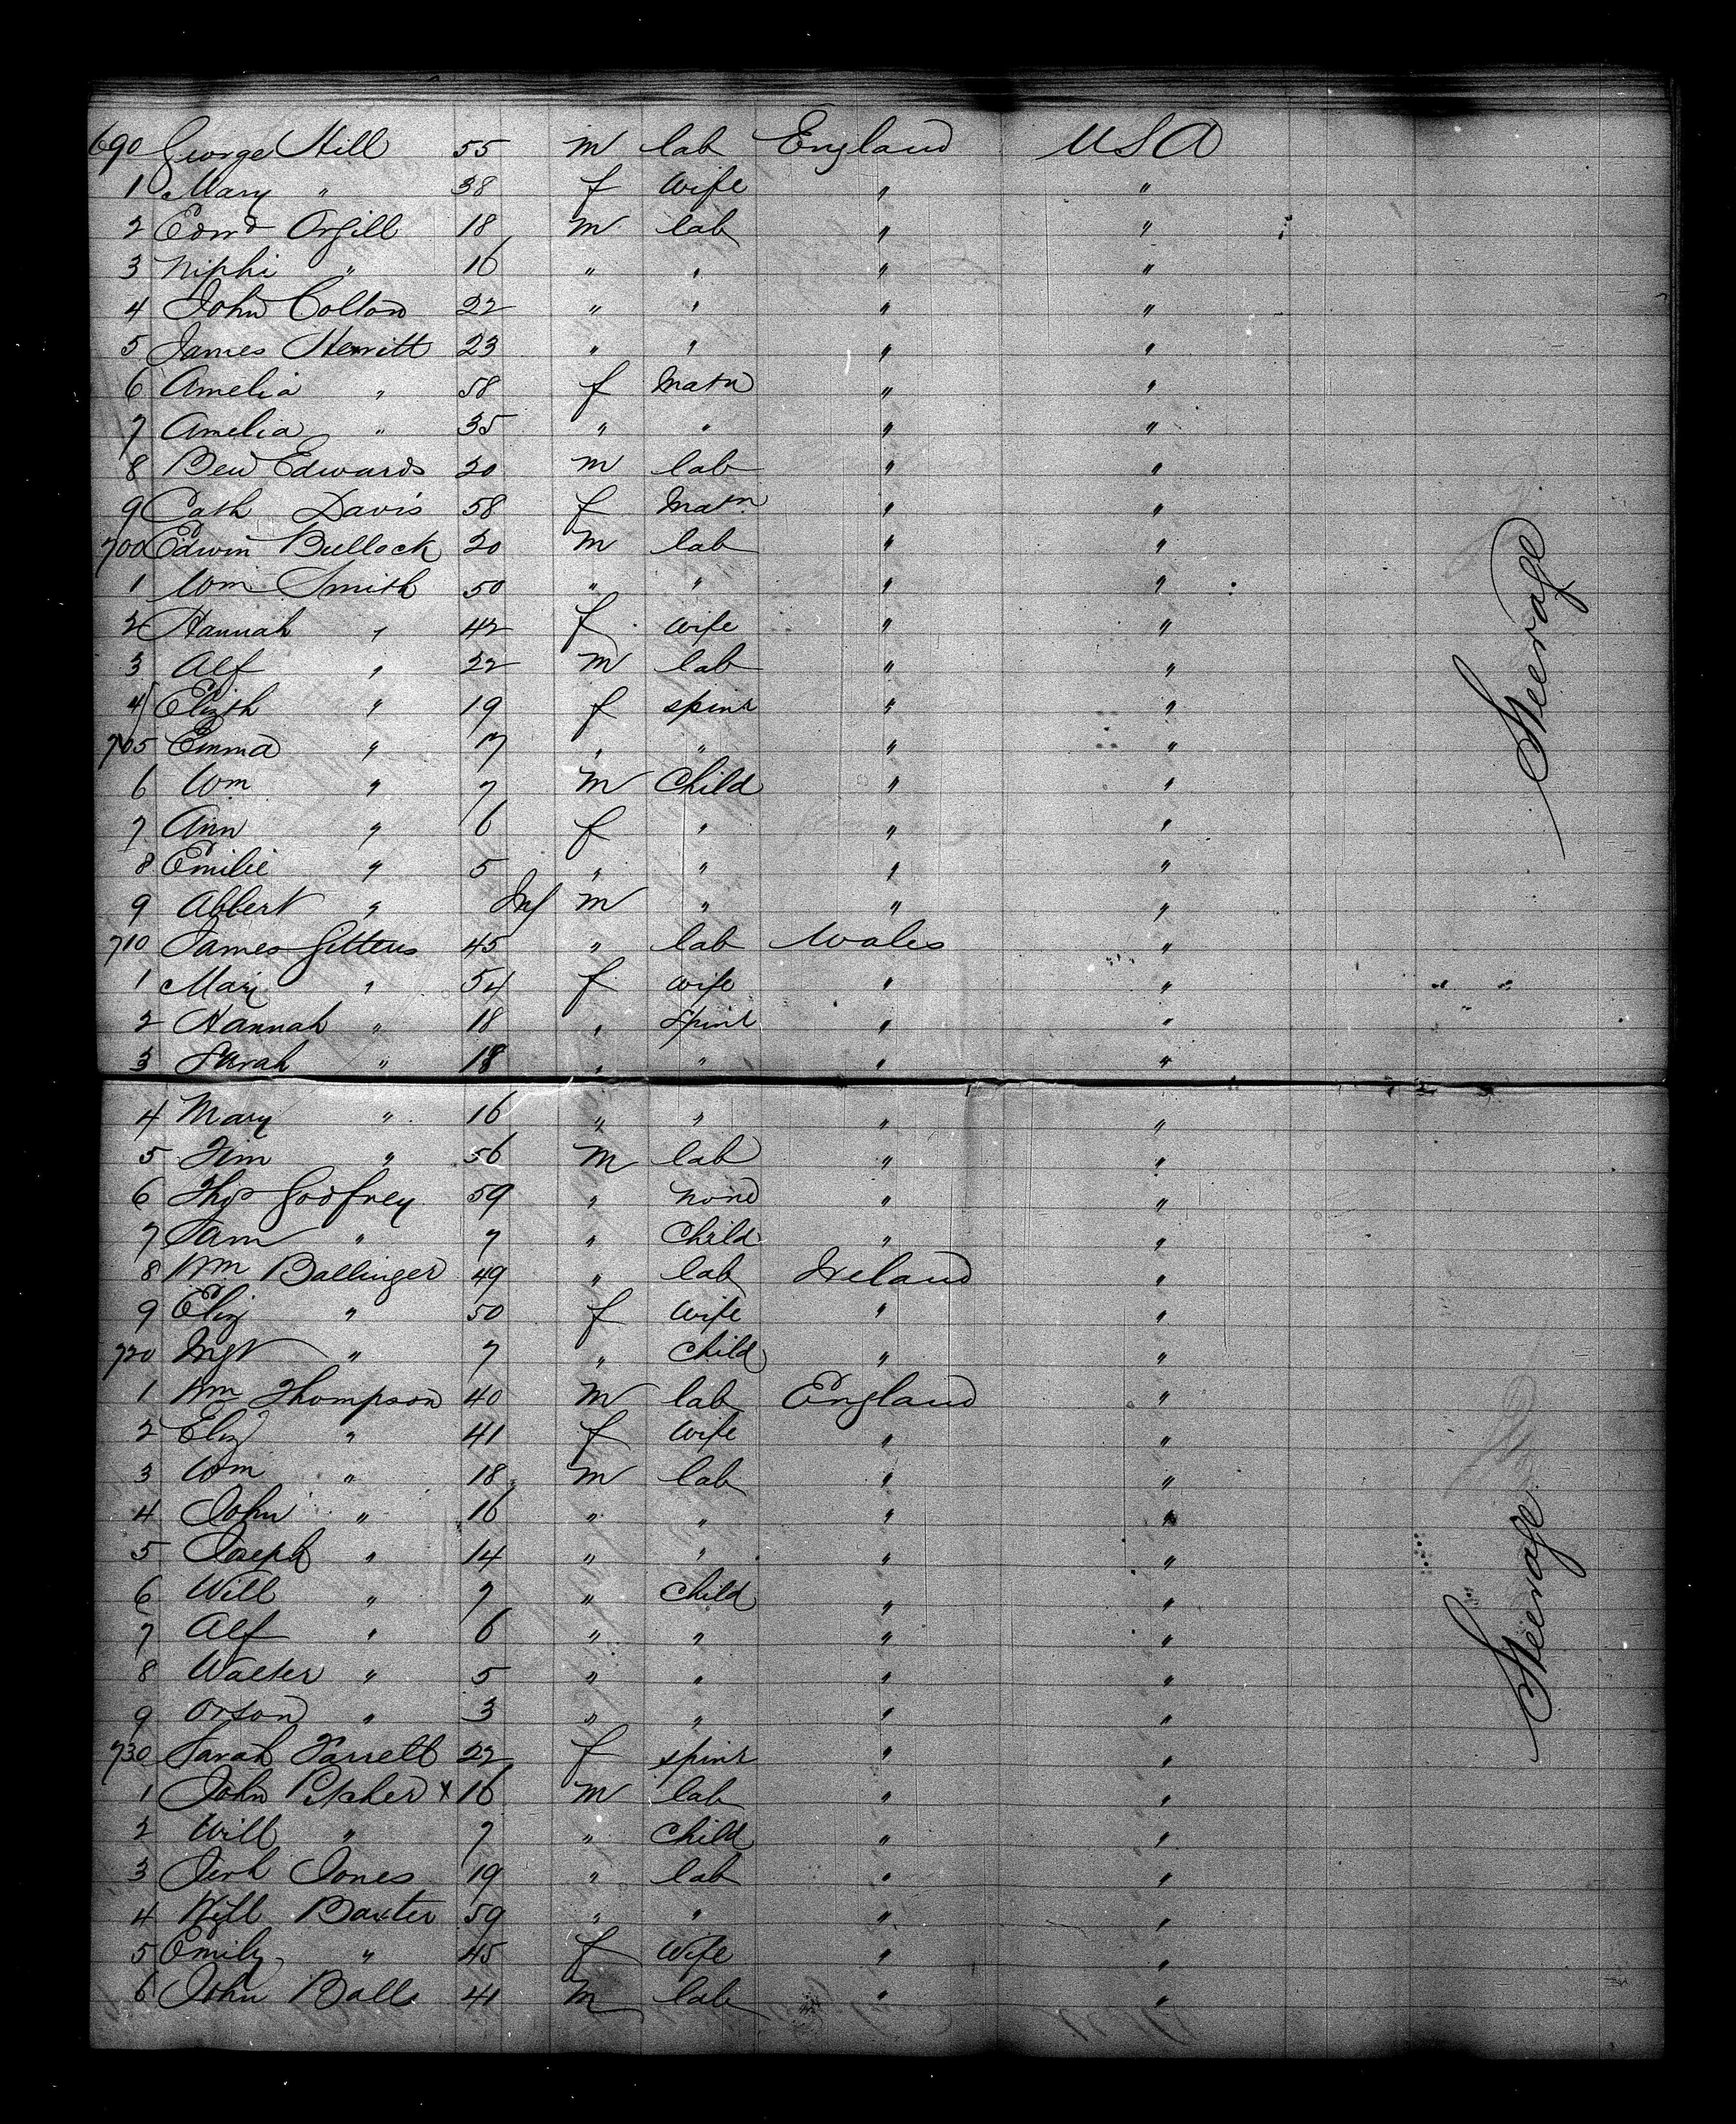 690 George Hill 55 m lab England USA
1 Mary " 38 f wife " "
2 Edwd Orgill 18 m lab " "
3 Niphi " 16 " " " "
4 John Colton 22 " " " "
5 James Hewitt 23 " " " "
6 Amelia " 58 f Matn " "
7 Amelia " 35 " " " "
8 Ben Edwards 20 m lab " "
9 Cath Davis 58 f Matn " "
700 Edwin Bullock 20 m lab " "
1 Wm Smith 50 " " " "
2 Hannah " 42 f wife " "
3 Alf " 22 m lab " "
4 Elizth " 19 f spinr " "
705 Emma " 17 " " " "
6 Wm " 7 m Child " "
7 Ann " 6 f " " "
8 Emilie " 5 " " " "
9 Albert " Inf m " " "
710 James Gittens 45 " lab Wales "
1 Mary " 54 f wife " "
2 Hannah " 18 " Spinr " "
3 Sarah " 18 " " " "
4 Mary " 16 " " " "
5 Jim " 56 m lab " "
6 Thos Godfrey 59 " none " "
7 Sam " 7 " Child " "
8 Wm Ballinger 49 " lab Ireland "
9 Eliz " 50 f wife " "
720 Mgt " 7 " Child " "
1 Wm Thompson 40 m lab England "
2 Eliz " 41 f wife " "
3 Wm " 18 m lab " "
4 John " 16 " " " "
5 Joseph " 14 " " " "
6 Will " 7 " Child " "
7 Alf " 6 " " " "
8 Walter " 5 " " " "
9 Orson " 3 " " " "
730 Sarah 22 f spinr " "
1 John x 16 m lab " "
2 Will " 7 " Child " "
3 Jones 19 " lab " "
4 Will Baxter 59 " " " "
5 Emily " 45 f Wife " "
6 John Balls 41 m lab " "
Steerage
Steerage